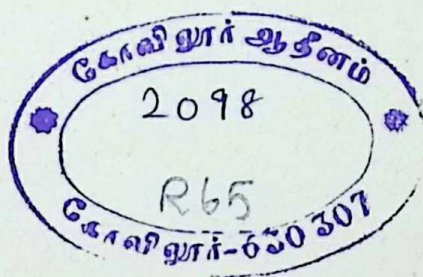 கோவிலூர் ஆதீனம்
2098
R65
கோவிலூர்-630 307